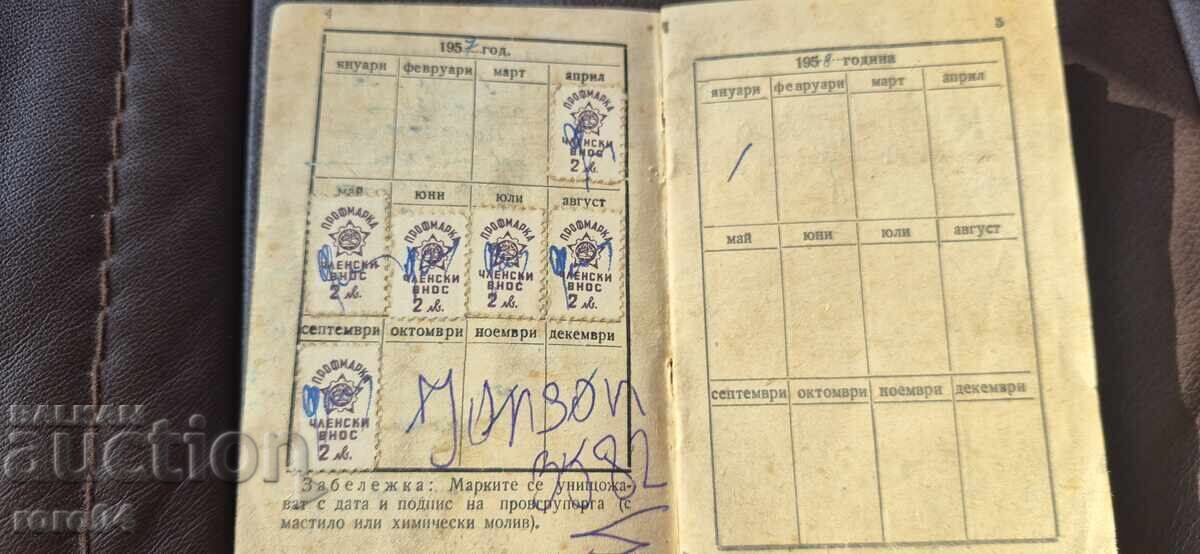 4
1957 год.
януари февруари март април
ПРОФМАРКА
ЧЛЕНСКИ
ВНОС
2 лв.
май юни юли август
ПРОФМАРКА ПРОФМАРКА ПРОФМАРКА ПРОФМАРКА
ЧЛЕНСКИ ЧЛЕНСКИ ЧЛЕНСКИ ЧЛЕНСКИ
ВНОС ВНОС ВНОС ВНОС
2 лв. 2 лв. 2 лв. 2 лв.
септември октомври ноември декември
ПРОФМАРКА
ЧЛЕНСКИ
ВНОС
2 лв.
Забележка: Марките се унищожа-
ват с дата и подпис на профгрупорга (с
мастило или химически молив).
5
1958 година
януари февруари март април
май юни юли август
септември октомври ноември декември
БАЛКАН
auction
roro94